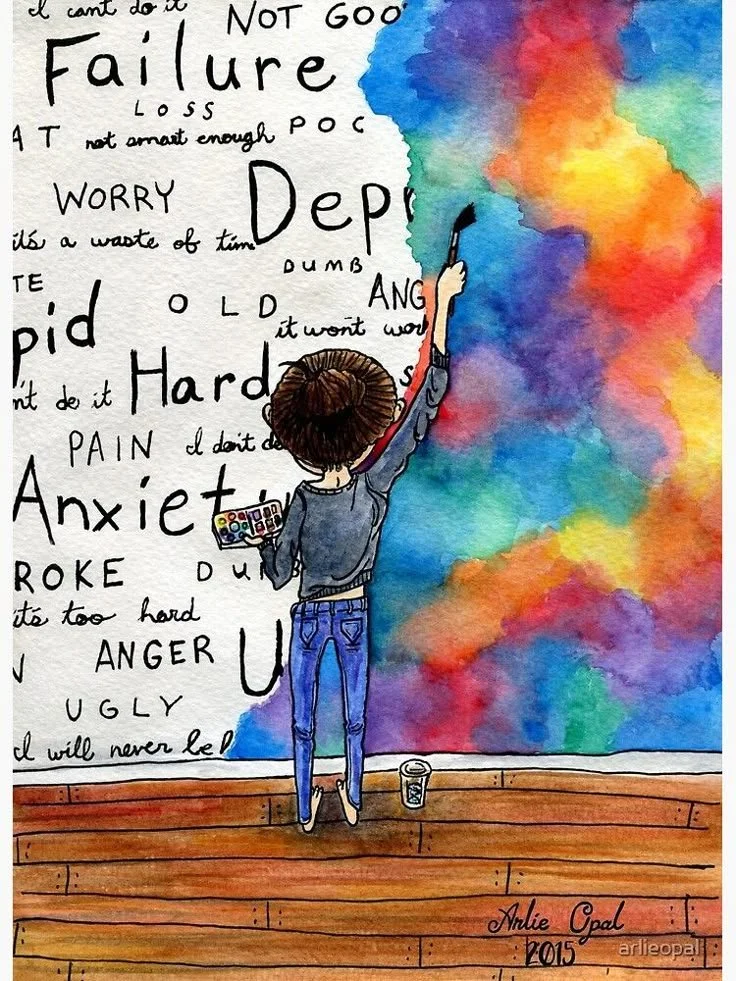 I cant do it
NOT GOO
Failure
LOSS
AT not smart enough POC
WORRY Dep
it's a waste of time
DUMB
TE OLD ANG
pid it wont work
n't do it Hard
PAIN I dont de
Anxiety
ROKE DUM
it's too hard
ANGER U
UGLY
I will never be
Arlie Opal
2015
arlieopal